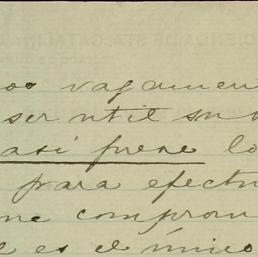 vagamen
ser util su
asi fuese lo
para efectu
me comprom
es el único